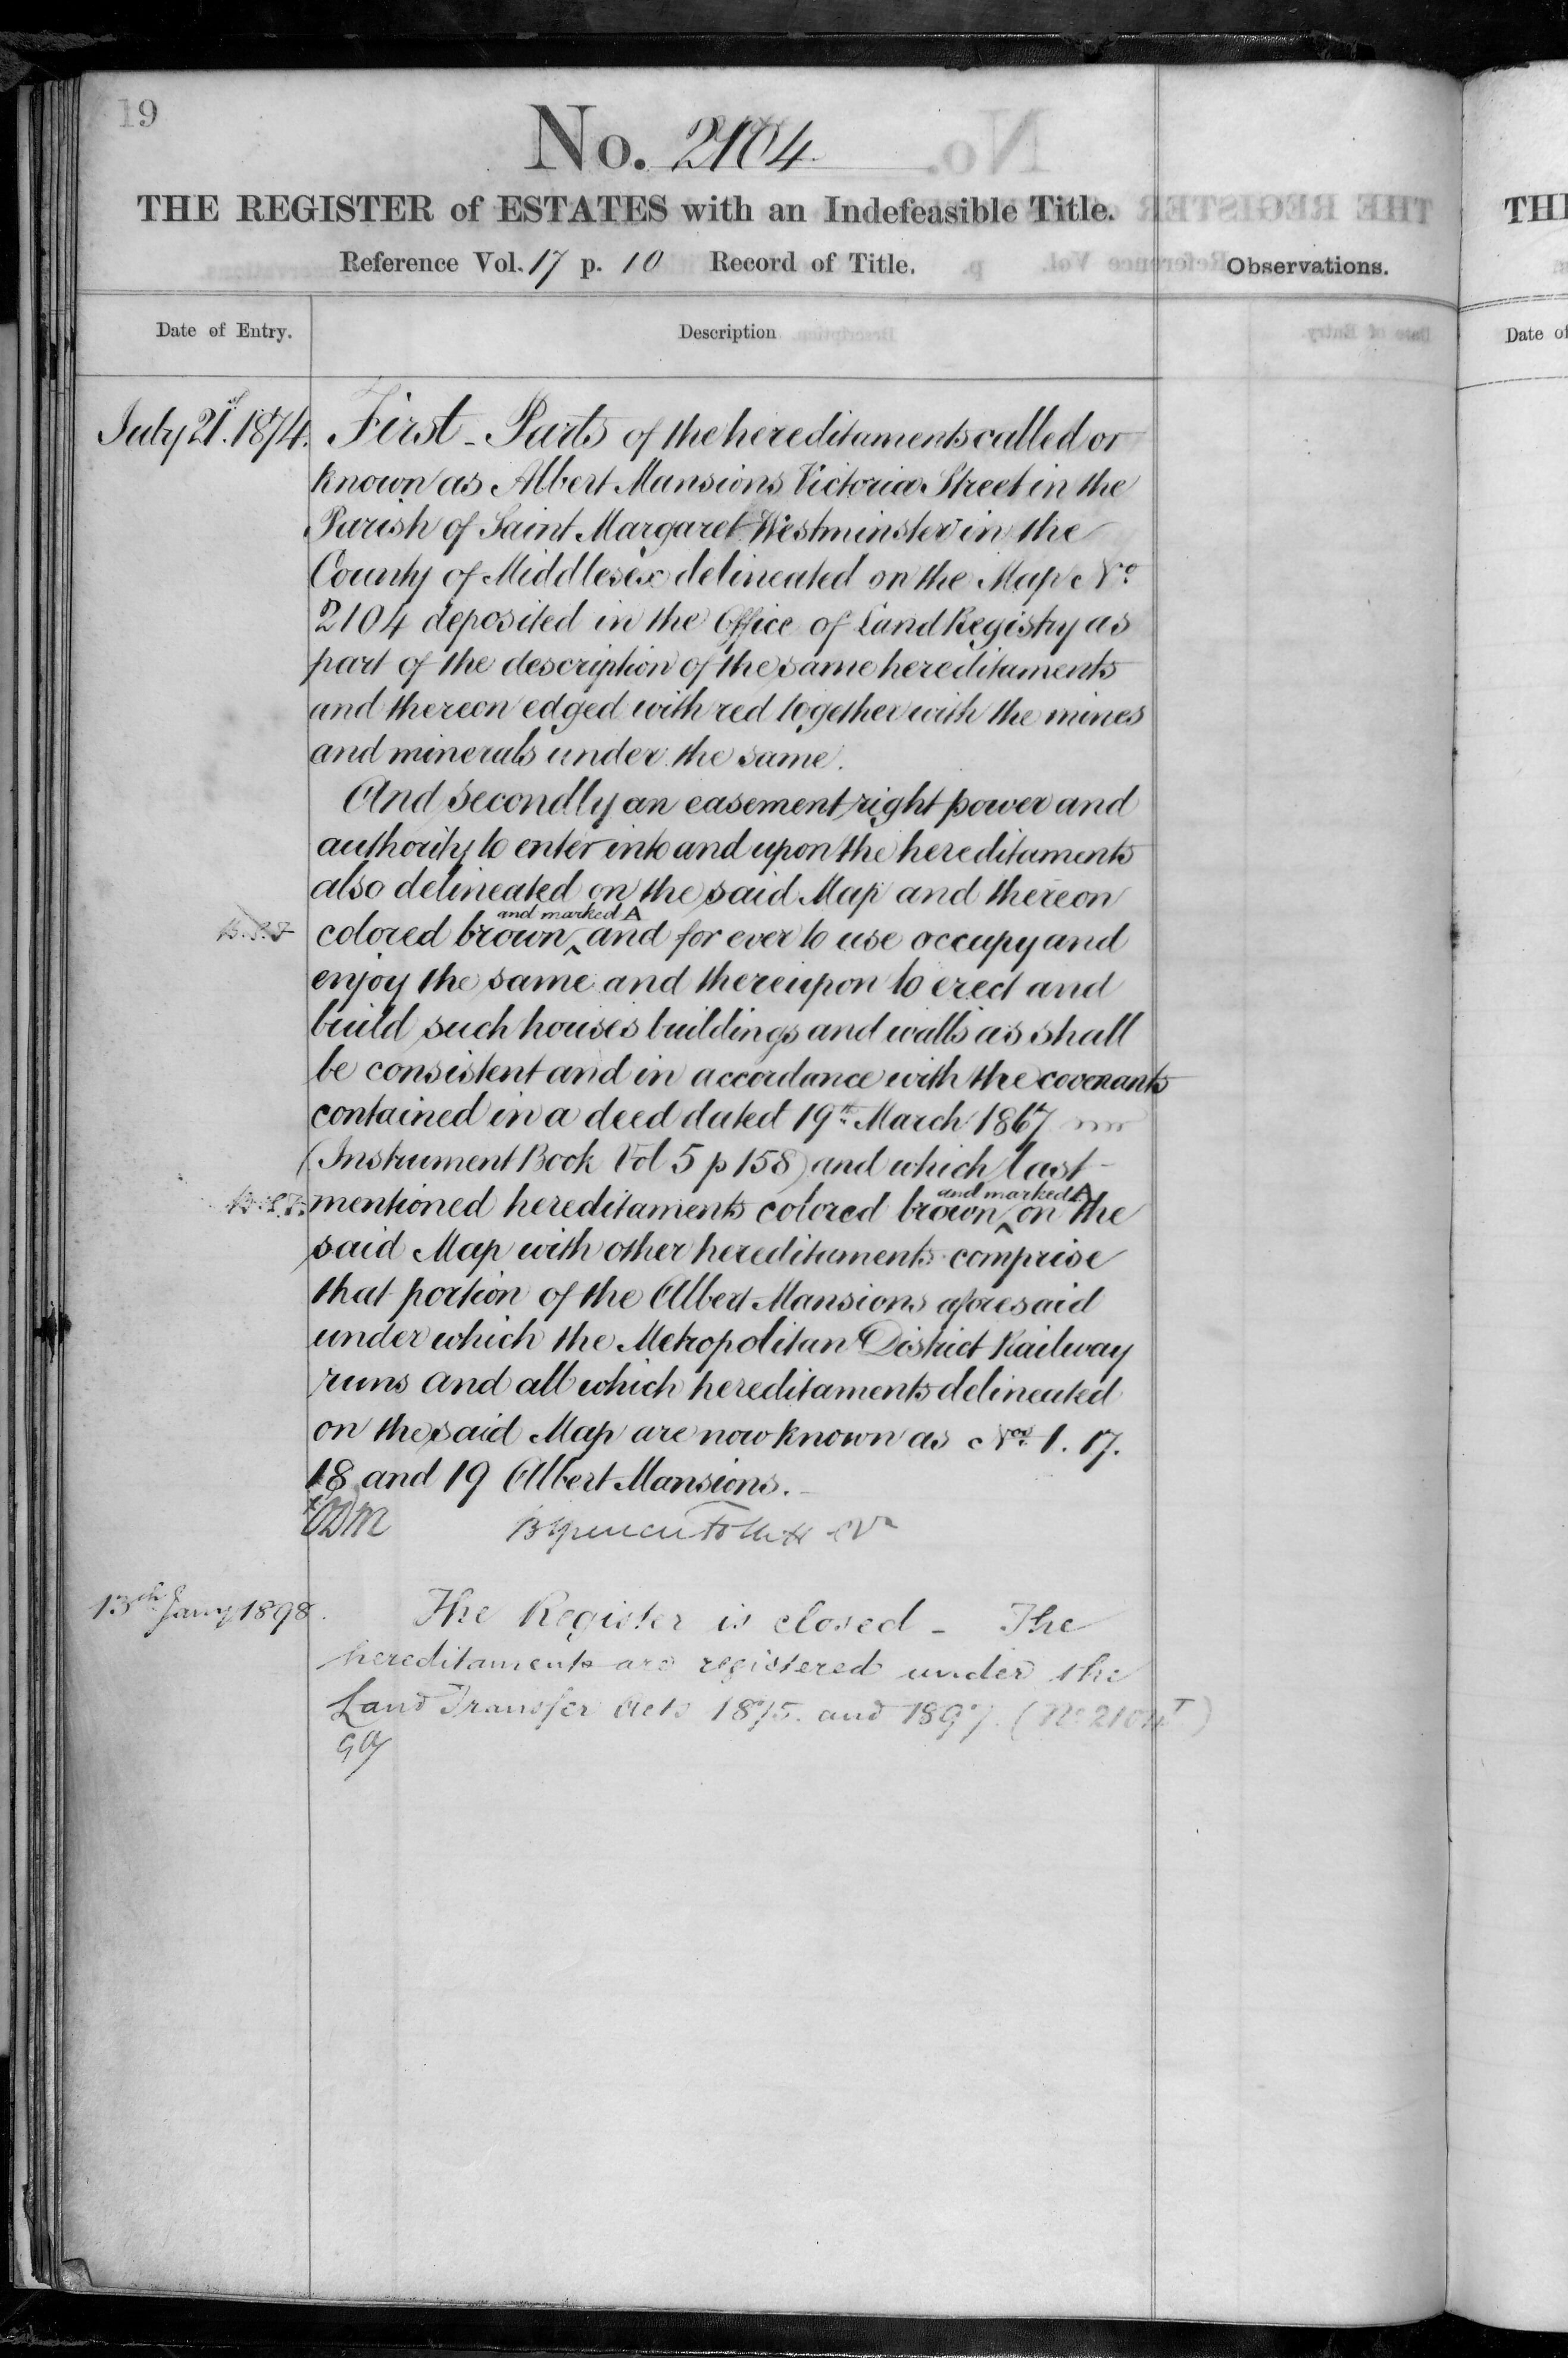 19
No. 2104
THE REGISTER of ESTATES with an Indefeasible Title.
Reference Vol. 17 p. 10 Record of Title.
Observations.
Date of Entry.
Description
July 21st. 1874.
First - Parts of the hereditaments called or
known as Albert Mansions Victoria Street in the
Parish of Saint Margaret Westminster in the
County of Middlesex delineated on the Map No
2104 deposited in the Office of Land Registry as
part of the description of the same hereditaments
and thereon edged with red together with the mines
and minerals under the same.
And secondly an easement right power and
authority to enter into and upon the hereditaments
also delineated on the said Map and thereon
and marked A
B.S.F. colored brown ^ and for ever to use occupy and
enjoy the same and thereupon to erect and
build such houses buildings and walls as shall
be consistent and in accordance with the covenants
contained in a deed dated 19th March 1867
(Instrument Book Vol 5 p 158) and which last
and marked A
B.S.F. mentioned hereditaments colored brown ^ on the
said Map with other hereditaments comprise
that portion of the Albert Mansions aforesaid
under which the Metropolitan District Railway
runs and all which hereditaments delineated
on the said Map are now known as Nos. 1. 17.
18 and 19 Albert Mansions.
13th Jany 1898.
The Register is closed - The
hereditaments are registered under the
Land Transfer Acts 1875. and 1897. (No 2104T)
TH
Date of